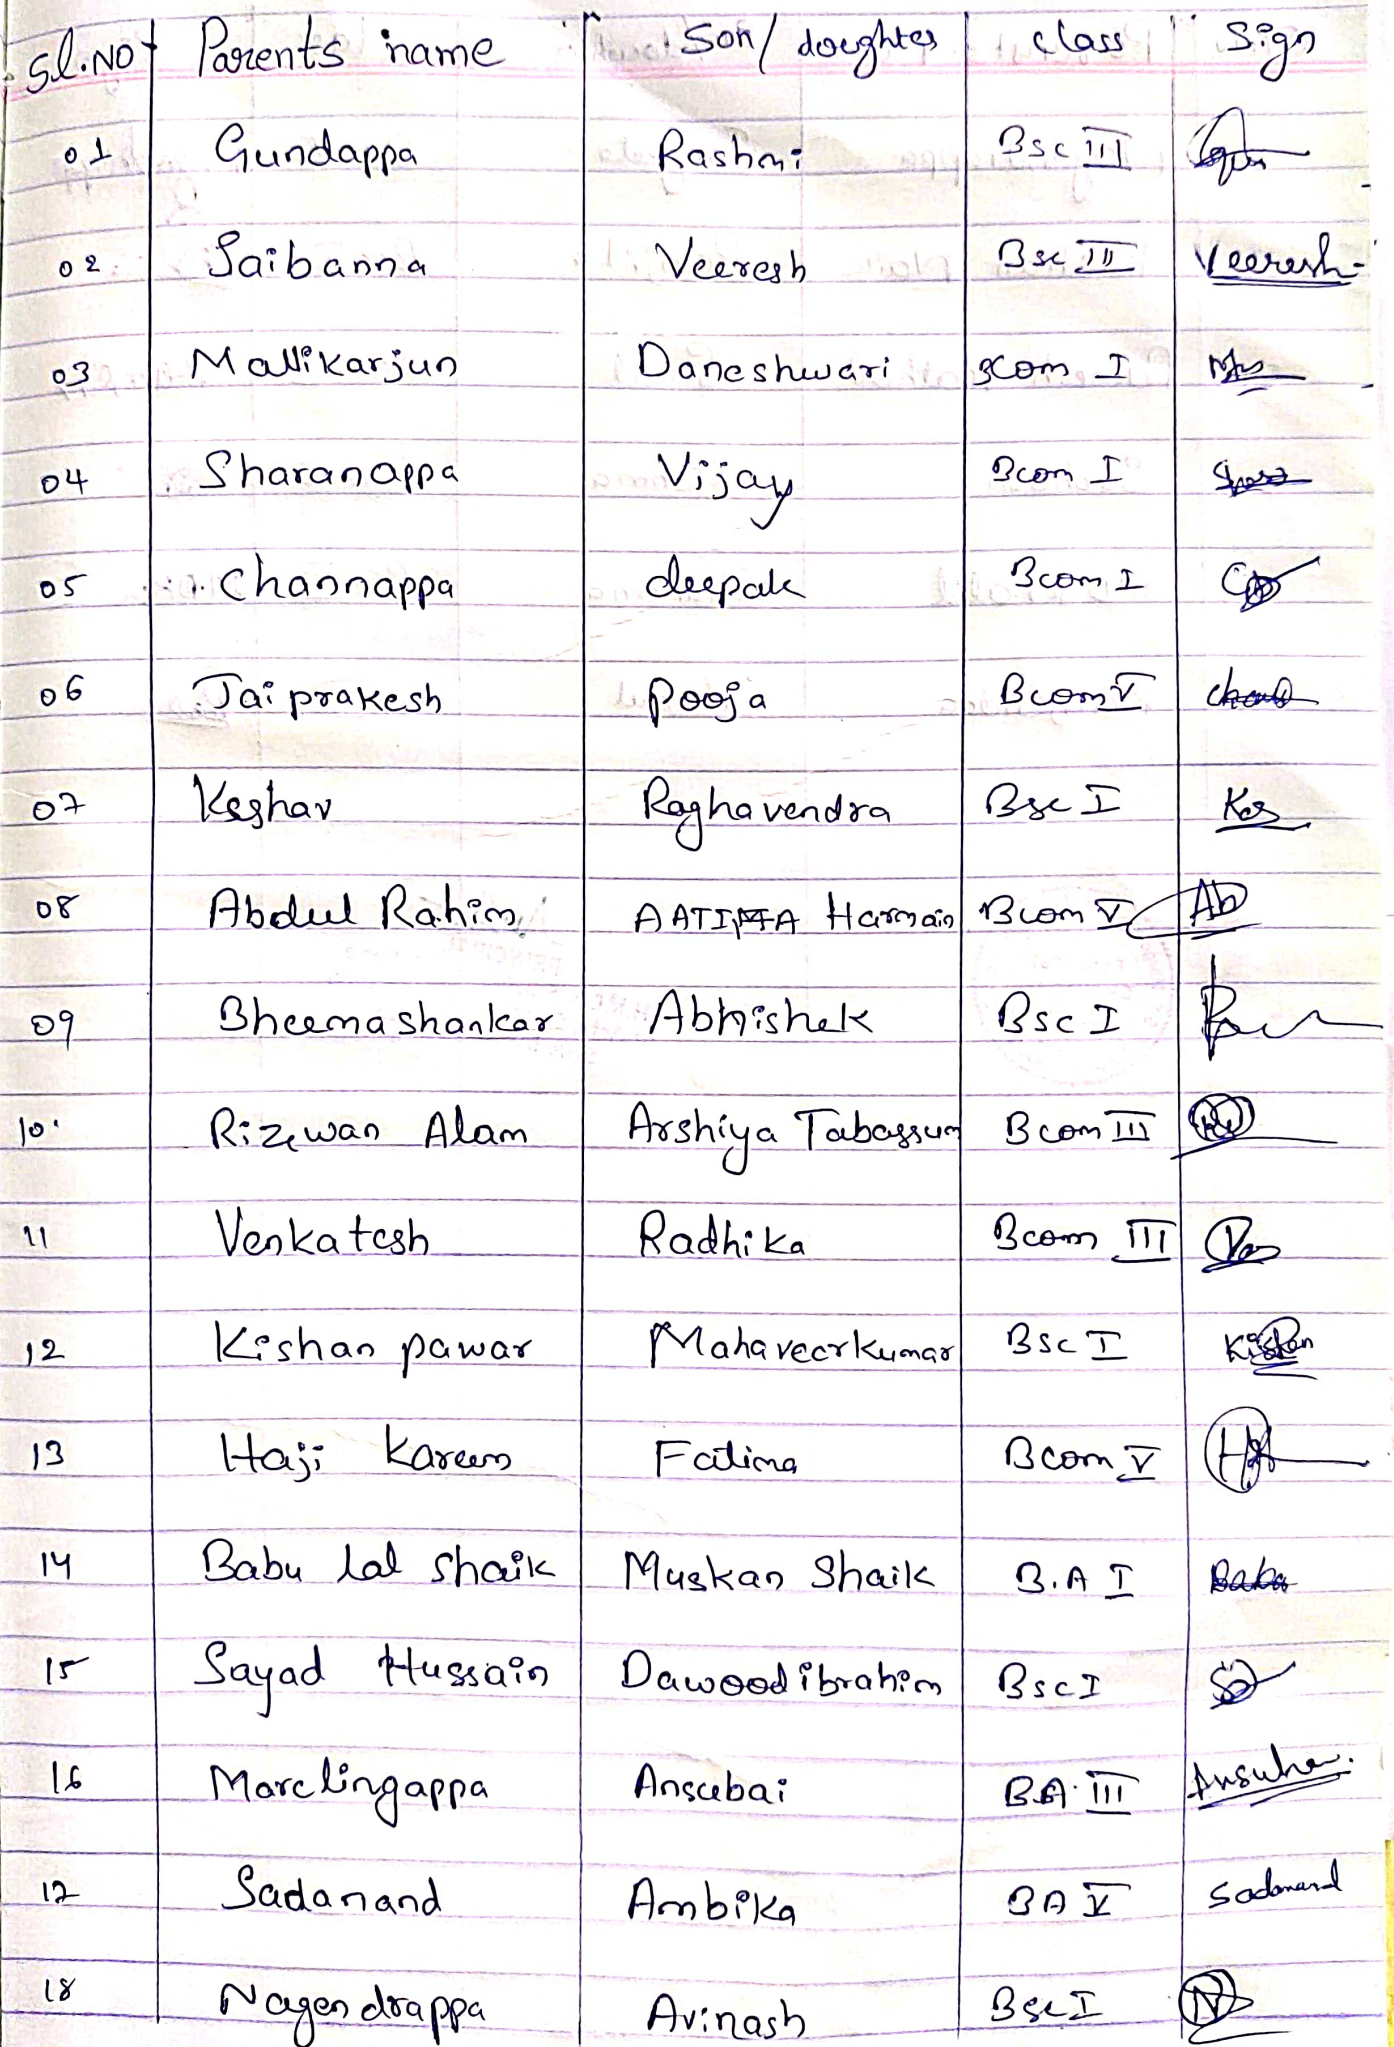 Sl.NO Parents name Son/ doughter class Sign
01 Gundappa Rashmi Bsc III
02 Saibanna Veeresh Bsc III Veeresh
03 Mallikarjun Daneshwari BCom I
04 Sharanappa Vijay Bcom I
05 Channappa deepak Bcom I
06 Jai prakesh Pooja Bcom V
07 Keshav Raghavendra Bsc I Kes
08 Abdul Rahim Harmain Bcom V Ab
09 Bheemashankar Abhishek Bsc I
10. Rizwan Alam Arshiya Tabassum Bcom III
11 Venkatesh Radhika Bcom III Ven
12 Kishan pawar Mahaveerkumar Bsc I Kishan
13 Haji Kareem Fatima Bcom V
14 Babu lal Shaik Muskan Shaik B.A I Babu
15 Sayad Hussain Dawood ibrahim Bsc I
16 Marelingappa Ansubai B.A. III
17 Sadanand Ambika BA V Sadanand
18 Nagendrappa Avinash Bsc I N